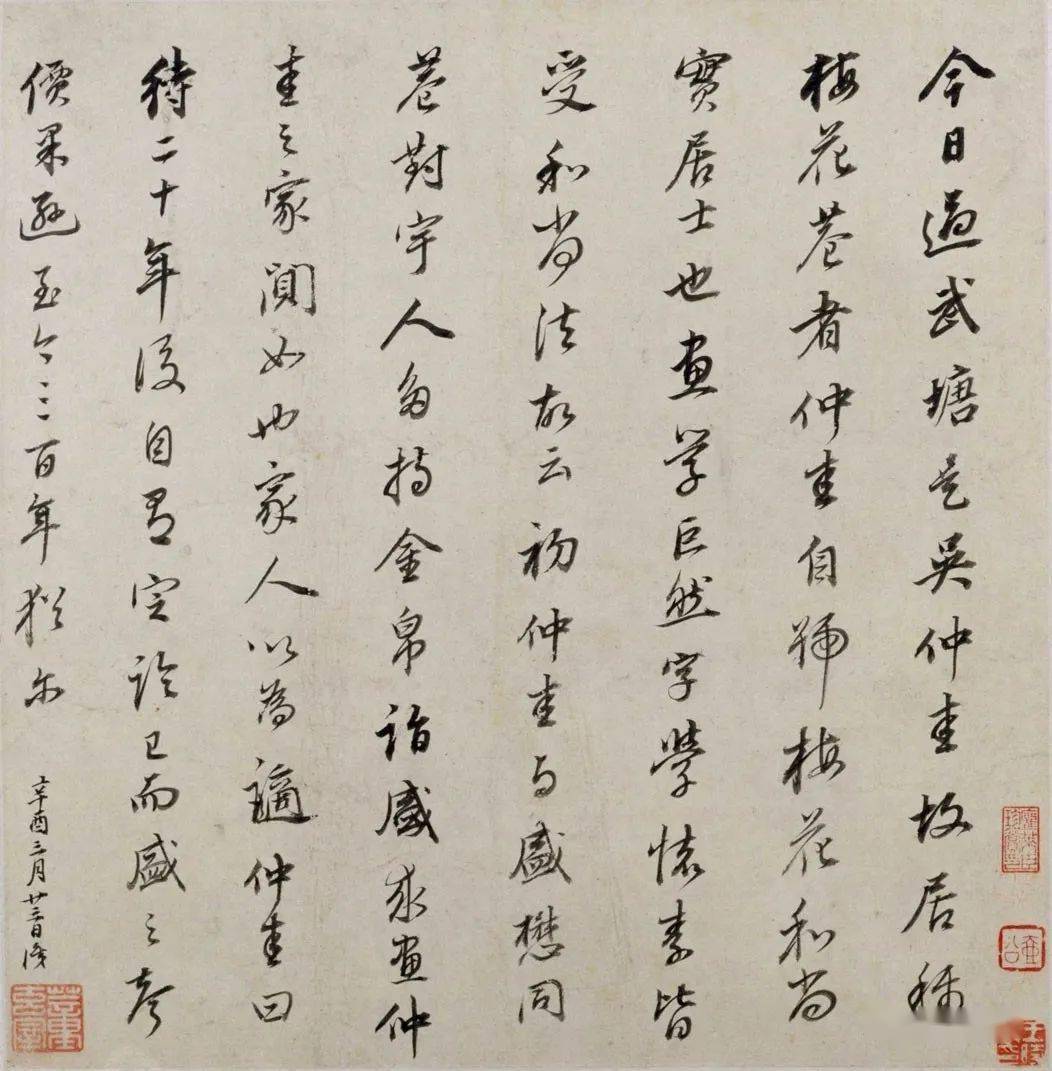 今日過武塘是吳仲圭故居稱
梅花菴者仲圭自號梅花和尚
實居士也畫學巨然字學懷素皆
受和尚法故云初仲圭与盛懋同
巷對宇人多持金帛詣盛求畫仲
圭之家闃如也家人以為謫仲圭曰
待二十年後自有定論已而盛之聲
價果遜至今三百年猶爾
辛酉三月廿三日識